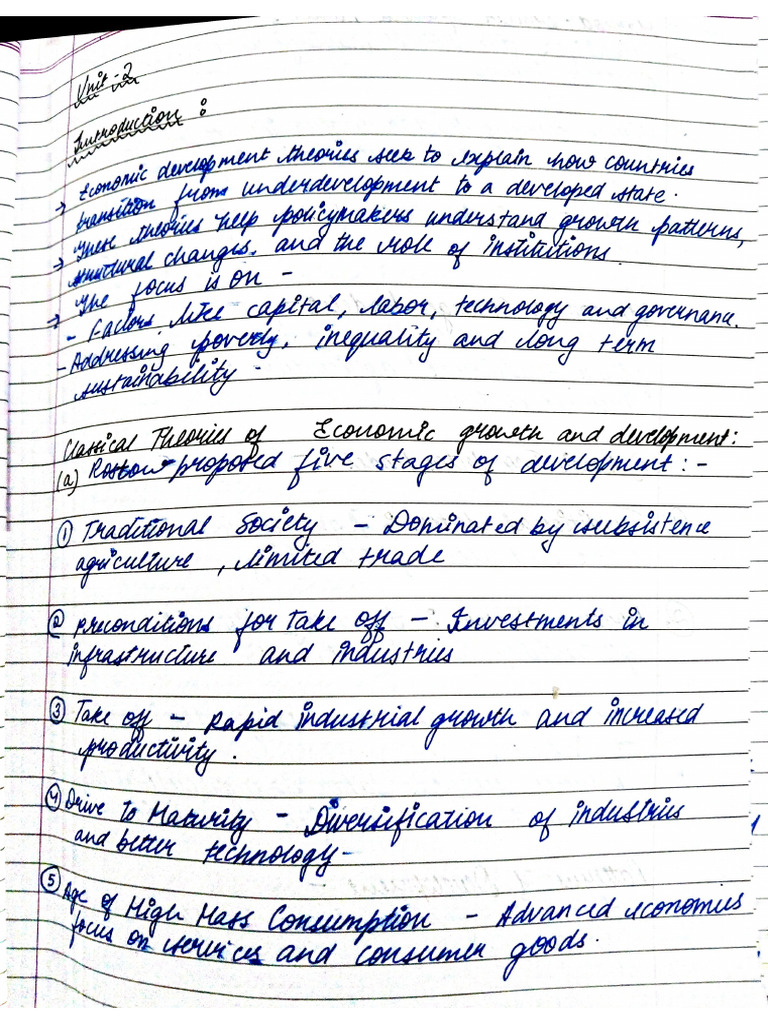 Unit - 2
Introduction :
→ Economic development theories seek to explain how countries
transition from underdevelopment to a developed state.
→ These theories help policymakers understand growth patterns,
structural changes, and the role of institutions.
→ The focus is on -
- Factors like capital, labor, technology and governance.
- Addressing poverty, inequality and long term
sustainability -
Classical Theories of Economic growth and development:
(a) Rostow proposed five stages of development : -
① Traditional Society - Dominated by subsistence
agriculture, limited trade
② Preconditions for Take off - Investments in
infrastructure and industries
③ Take off - Rapid industrial growth and increased
productivity.
④ Drive to Maturity - Diversification of industries
and better technology -
⑤ Age of High Mass Consumption - Advanced economies
focus on services and consumer goods.